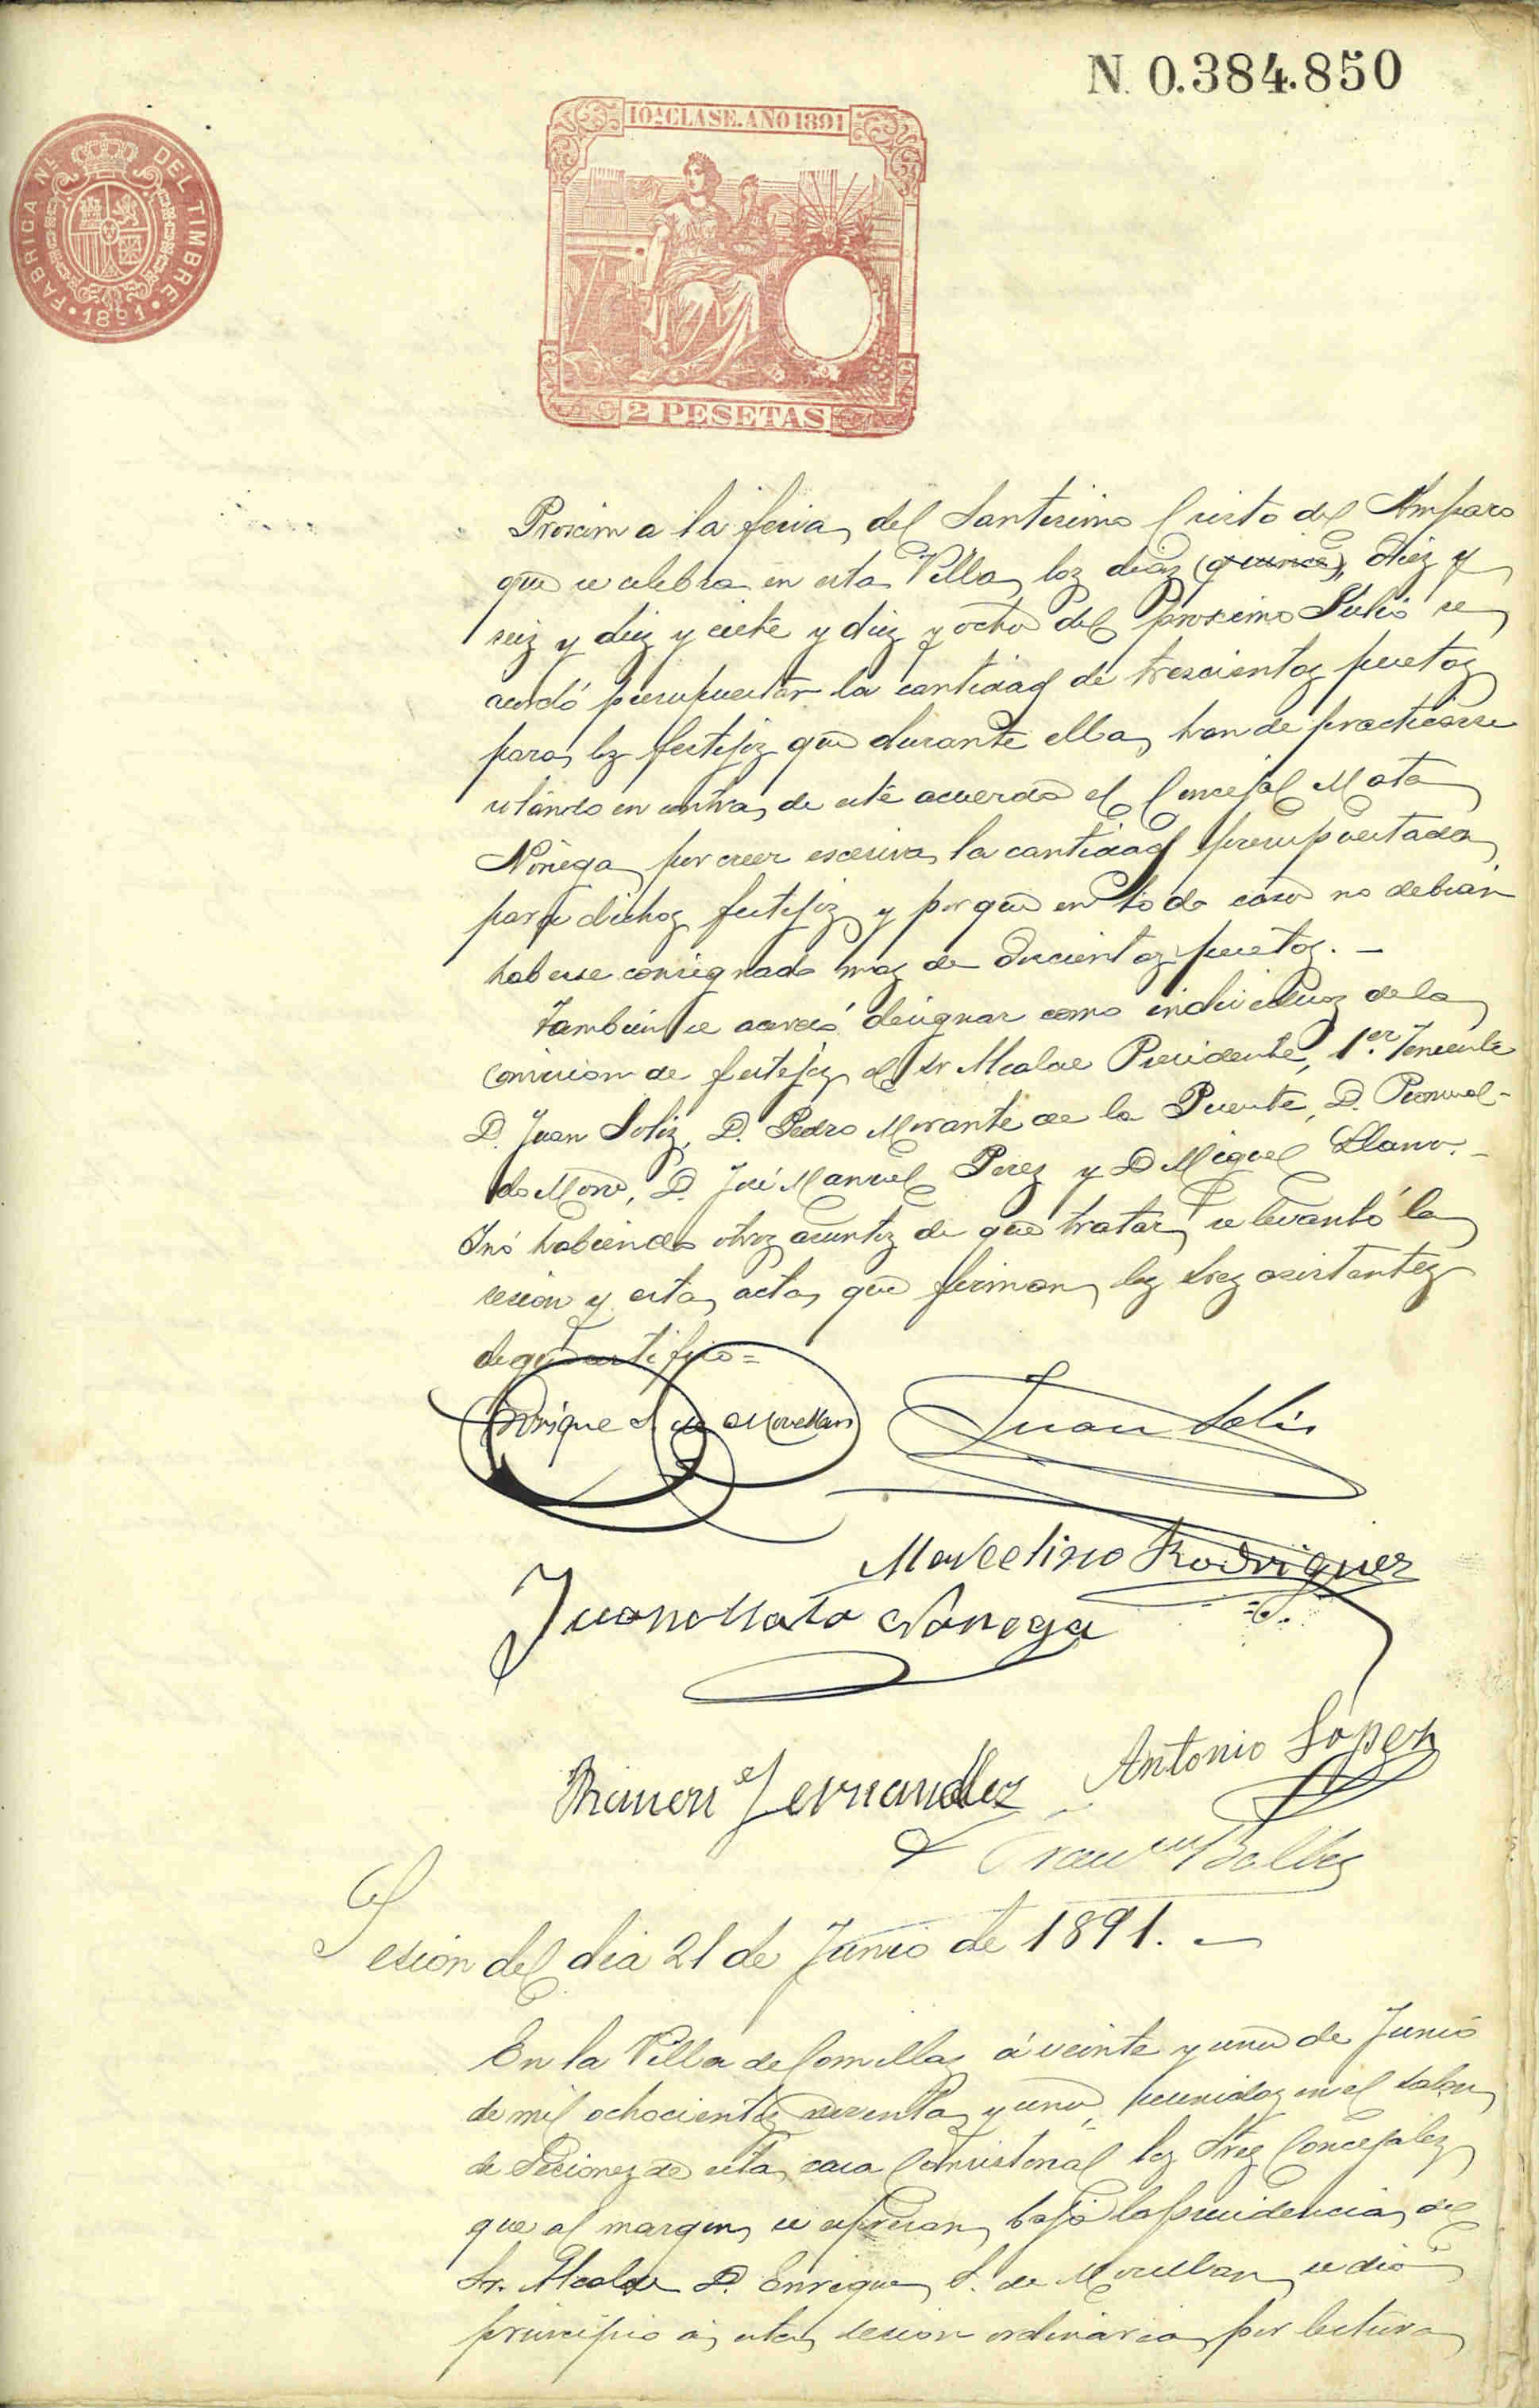 N. 0.384.850
10ª CLASE. AÑO 1891
FABRICA NL. DEL TIMBRE
1891
2 PESETAS
Proxima la feria del Santisimo Cristo del Amparo
que se celebra en esta Villa los dias (quince), diez y
seis y diez y ciete y diez y ocho del proximo Julio se
acordó presupuestar la cantidad de trescientas pesetas
para los festejos que durante ella han de practicarse
votando en contra de este acuerdo el Concejal Mata
Noriega por creer escesiva la cantidad presupuestada
para dichos festejos y porque en todo caso no debian
haberse consignado mas de doscientas pesetas. -
Tambien se acordó designar como individuos de la
Comision de festejos al Sr Alcalde Presidente, 1er. Teniente
D. Juan Solis, D. Pedro Morante de la Puente, D. Romual-
do Moro, D. José Manuel Perez y D Miguel Llano. -
Y no habiendo otros asuntos de que tratar se levantó la
sesion y esta acta que firman los Sres asistentes
de que certifico =
Enrique S. de Movellan
Juan Solis
Marcelino Rodriguez
Juan Mata Noriega
Antonio Lopez
Ramon Fernandez
Sesion del dia 21 de Junio de 1891. -
En la Villa de Comillas á veinte y uno de Junio
de mil ochocientos noventa y uno, reunidos en el salon
de Seciones de esta casa Consistorial los Sres Concejales
que al margen se espresan bajo la presidencia del
Sr. Alcalde D. Enrique S. de Movellan se dió
principio a esta sesion ordinaria por lectura